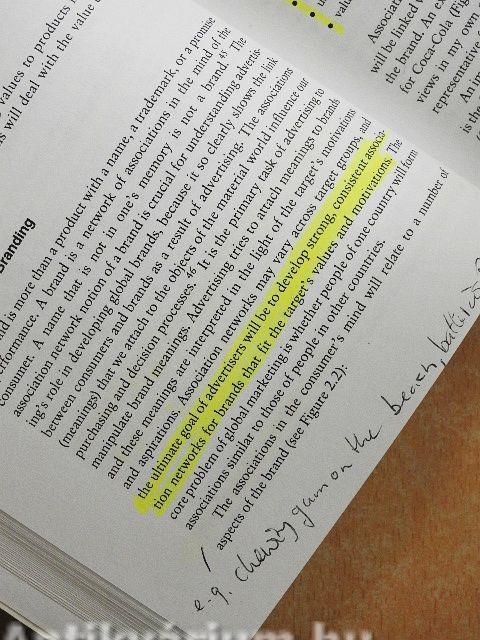 values to products
s will deal with the value
Branding
nd is more than a product with a name, a trademark, or a promise
erformance. A brand is a network of associations in the mind of the
consumer. A name that is not in one's memory is not a brand.45 The
association network notion of a brand is crucial for understanding advertis-
ing's role in developing global brands, because it so clearly shows the link
between consumers and brands as a result of advertising. The associations
(meanings) that we attach to the objects of the material world influence our
purchasing and decision processes.46 It is the primary task of advertising to
manipulate brand meanings. Advertising tries to attach meanings to brands
and these meanings are interpreted in the light of the target's motivations
and aspirations. Association networks may vary across target groups, and
the ultimate goal of advertisers will be to develop strong, consistent associa-
tion networks for brands that fit the target's values and motivations. The
core problem of global marketing is whether people of one country will form
associations similar to those of people in other countries.
The associations in the consumer's mind will relate to a number of
aspects of the brand (see Figure 2.2):
e.g. chewing gum on the beach,
Associatio
will be linked
the brand. An ex
for Coca-Cola (Fig
views in my own
representative
An im
is the
Antikvárium.hu